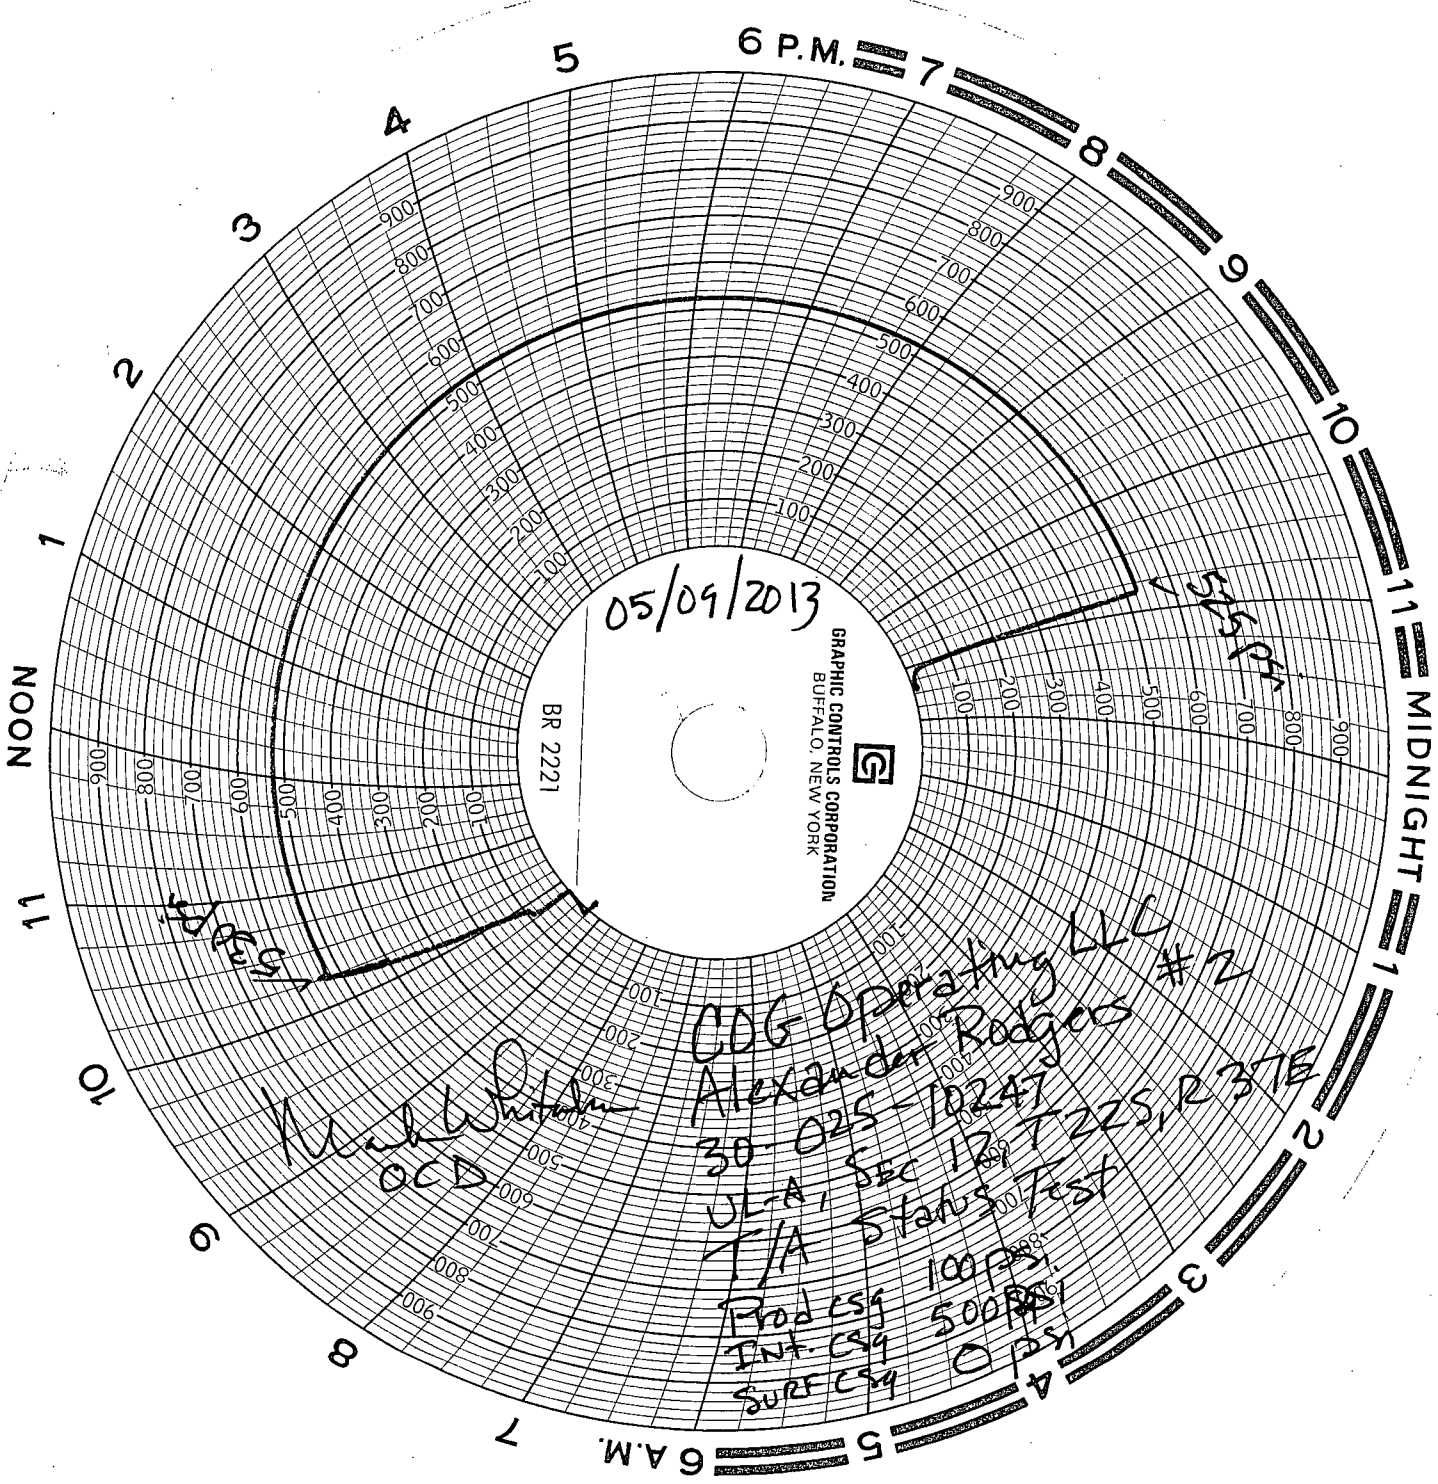 6 P.M.
7
8
9
10
11
MIDNIGHT
1
2
3
4
5
6 A.M.
7
8
9
10
11
NOON
1
2
3
4
5
900
800
700
600
500
400
300
200
100
900
800
700
600
500
400
300
200
100
100
200
300
400
500
600
700
800
900
900
800
700
600
500
400
300
200
100
100
200
300
400
500
600
700
800
900
100
05/09/2013
GRAPHIC CONTROLS CORPORATION
BUFFALO, NEW YORK
G
BR 2221
525 psi
COG Operating LLC
Alexander Rodgers #2
30-025-10247
UL-A, SEC 12, T22S, R37E
T/A Status Test
Prod csg 100 psi
INT. CSg 500 psi
SURF CSg 0 psi
Mark Whitaker
OCD